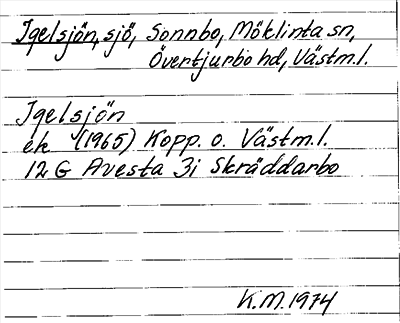 Igelsjön, sjö, Sonnbo, Möklinta sn,
Övertjurbo hd, Västm.l.
Igelsjön
ek (1965) Kopp. o. Västm.l.
12 G Avesta 3i Skräddarbo
K.M. 1974